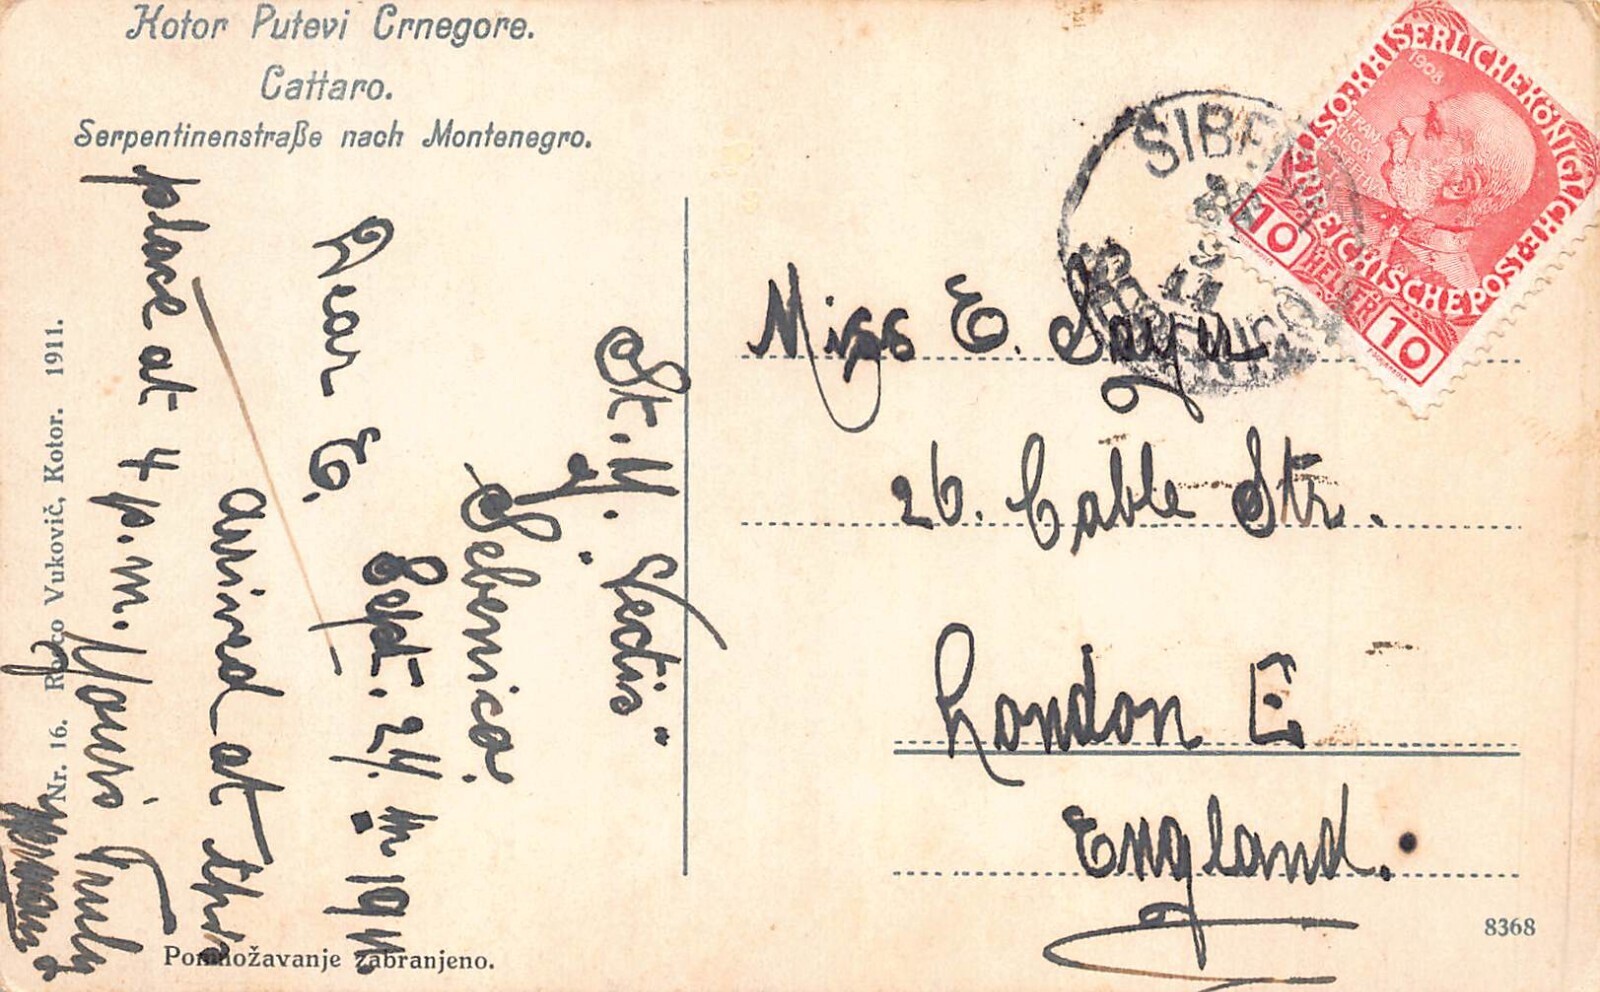 Kotor Putevi Crnegore.
Cattaro.
Serpentinenstraße nach Montenegro.
St. Y. "Vectis"
Sebenico.
Sept. 24th 1911
Dear E.
arrived at this
place at 4 p.m. Yours Truly
Nr. 16. Vuković, Kotor. 1911.
Pomnožavanje zabranjeno.
KAISERLICHE KÖNIGLICHE
ÖSTERREICHISCHE POST
1908
10 HELLER 10
SIBENIK
SEBENICO
11
Miss E. Sayer
26. Cable Str.
London E
England.
8368